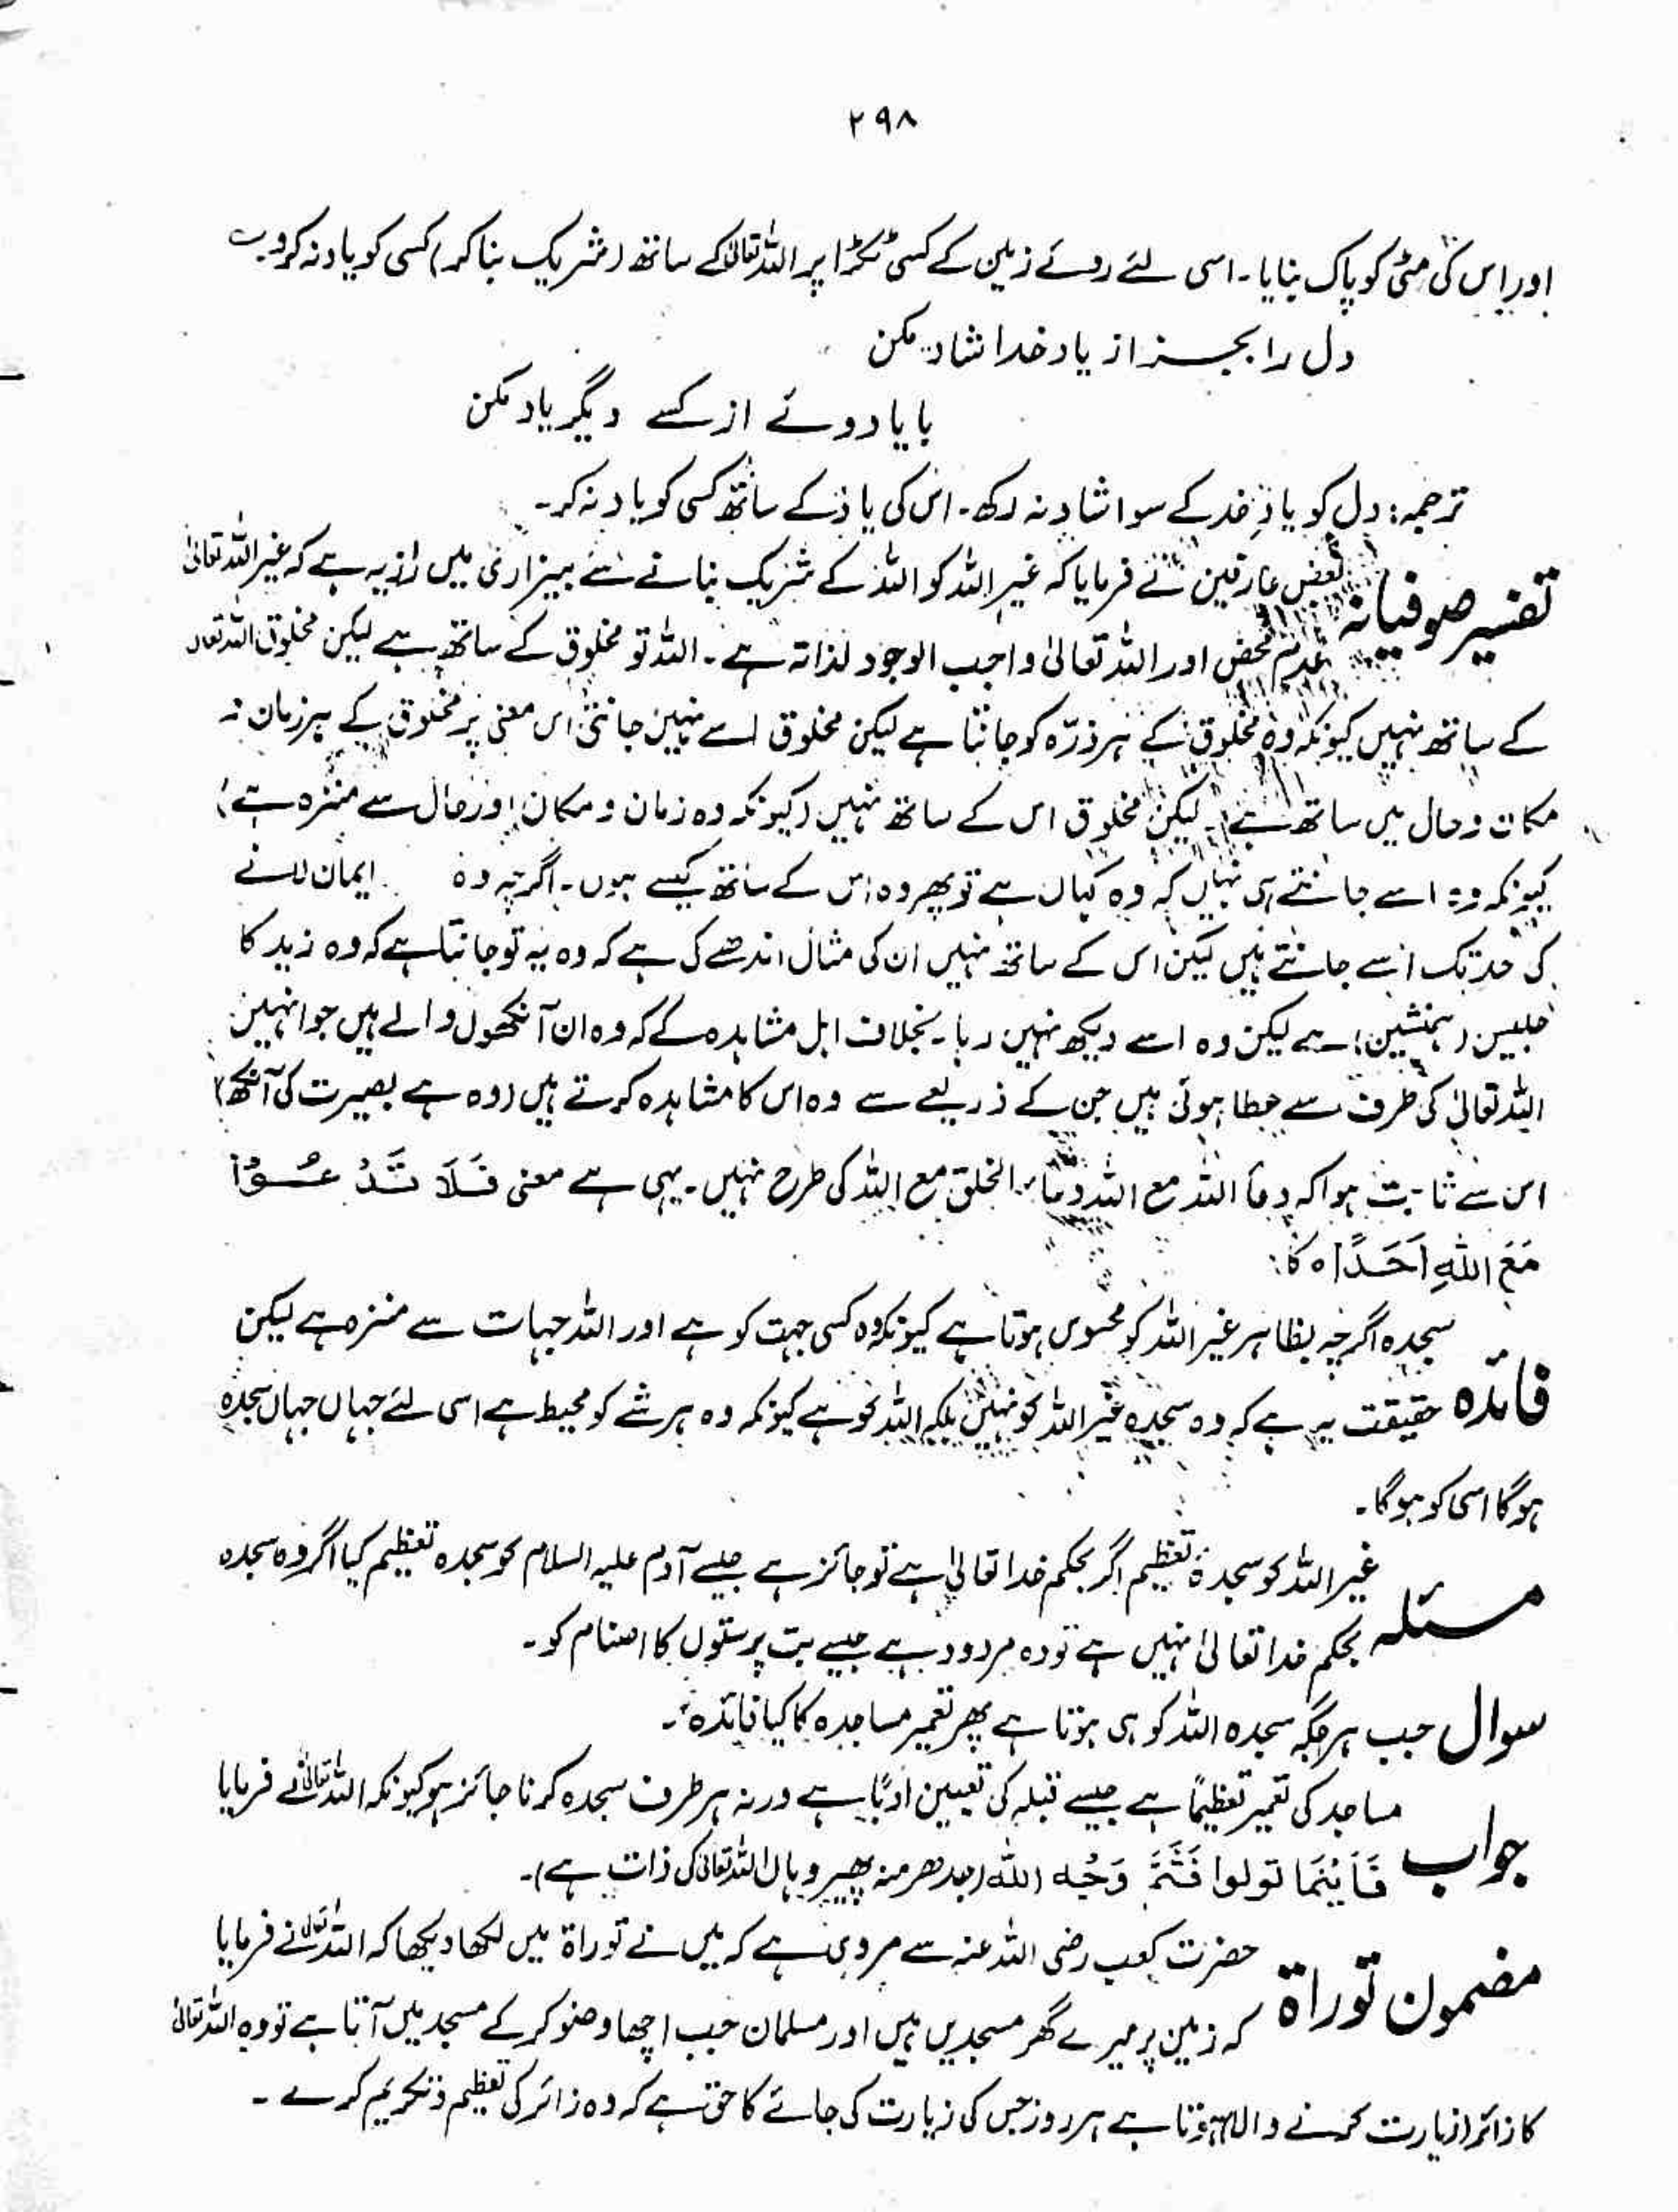 ۲۹۸
اور اس کی مٹی کو پاک بنایا۔ اسی لئے روئے زمین کے کسی ٹکڑا پر اللہ تعالیٰ کے ساتھ (شریک بنا کر) کسی کو یاد نہ کرو۔
دل را بجز از یاد خدا شاد مکن
با یاد وے از کسے دیگر یاد مکن
ترجمہ: دل کو یادِ خدا کے سوا شاد نہ رکھ۔ اس کی یاد کے ساتھ کسی کو یاد نہ کر۔
تفسیر صوفیانہ بعض عارفین نے فرمایا کہ غیر اللہ کو اللہ کے شریک بنانے سے بیزاری میں راز یہ ہے کہ غیر اللہ تعالیٰ
عدم محض اور اللہ تعالیٰ واجب الوجود لذاتہ ہے۔ اللہ تو مخلوق کے ساتھ ہے لیکن مخلوق اللہ تعالیٰ
کے ساتھ نہیں کیونکہ وہ مخلوق کے ہر ذرّہ کو جانتا ہے لیکن مخلوق اسے نہیں جانتی اس معنی پر مخلوق کے ہر زمان و
مکان و حال میں ساتھ ہے۔ لیکن مخلوق اس کے ساتھ نہیں (کیونکہ وہ زمان و مکان اور حال سے منزہ ہے)
کیونکہ وہ اسے جانتے ہی نہیں کہ وہ کہاں ہے تو پھر وہ اس کے ساتھ کیسے ہوں۔ اگرچہ وہ ایمان لانے
کی حد تک اسے جانتے ہیں لیکن اس کے ساتھ نہیں ان کی مثال اندھے کی ہے کہ وہ یہ تو جانتا ہے کہ وہ زید کا
جلیس (ہمنشین) ہے لیکن وہ اسے دیکھ نہیں رہا۔ بخلاف اہل مشاہدہ کے کہ وہ ان آنکھوں والے ہیں جو انہیں
اللہ تعالیٰ کی طرف سے عطا ہوئی ہیں جن کے ذریعے سے وہ اس کا مشاہدہ کرتے ہیں (وہ ہے بصیرت کی آنکھ)
اس سے ثابت ہوا کہ دعا اللہ مع اللہ دعا الخلق مع اللہ کی طرح نہیں۔ یہی ہے معنی فَلَا تَدْعُوْا
مَعَ اللّٰهِ اَحَدًا ٥ کا۔
سجدہ اگرچہ بظاہر غیر اللہ کو محسوس ہوتا ہے کیونکہ وہ کسی جہت کو ہے اور اللہ جہات سے منزہ ہے لیکن
فائدہ حقیقت یہ ہے کہ وہ سجدہ غیر اللہ کو نہیں بلکہ اللہ کو ہے کیونکہ وہ ہر شے کو محیط ہے اسی لئے جہاں جہاں سجدہ
ہوگا اسی کو ہوگا۔
مسئلہ غیر اللہ کو سجدۂ تعظیم اگر بحکم خدا تعالیٰ ہے تو جائز ہے جیسے آدم علیہ السلام کو سجدہ تعظیم کیا اگر وہ سجدہ
بحکم خدا تعالیٰ نہیں ہے تو وہ مردود ہے جیسے بت پرستوں کا اصنام کو۔
سوال جب ہر جگہ سجدہ اللہ کو ہی ہوتا ہے پھر تعمیر مساجدہ کا کیا فائدہ۔
جواب مساجد کی تعمیر تعظیماً ہے جیسے قبلہ کی تعیین ادباً ہے ورنہ ہر طرف سجدہ کرنا جائز ہو کیونکہ اللہ تعالیٰ نے فرمایا
فَاَیْنَمَا تولوا فَثَمَّ وَجْه اللّٰه (جدھر منہ پھیر و ہاں اللہ تعالیٰ کی ذات ہے)۔
مضمون توراة حضرت کعب رضی اللہ عنہ سے مروی ہے کہ میں نے توراة میں لکھا دیکھا کہ اللہ تعالیٰ نے فرمایا
کہ زمین پر میرے گھر مسجدیں ہیں اور مسلمان جب اچھا وضو کر کے مسجد میں آتا ہے تو وہ اللہ تعالیٰ
کا زائر (زیارت کرنے والا) ہوتا ہے ہر روز جس کی زیارت کی جائے کا حق ہے کہ وہ زائر کی تعظیم و تکریم کرے۔